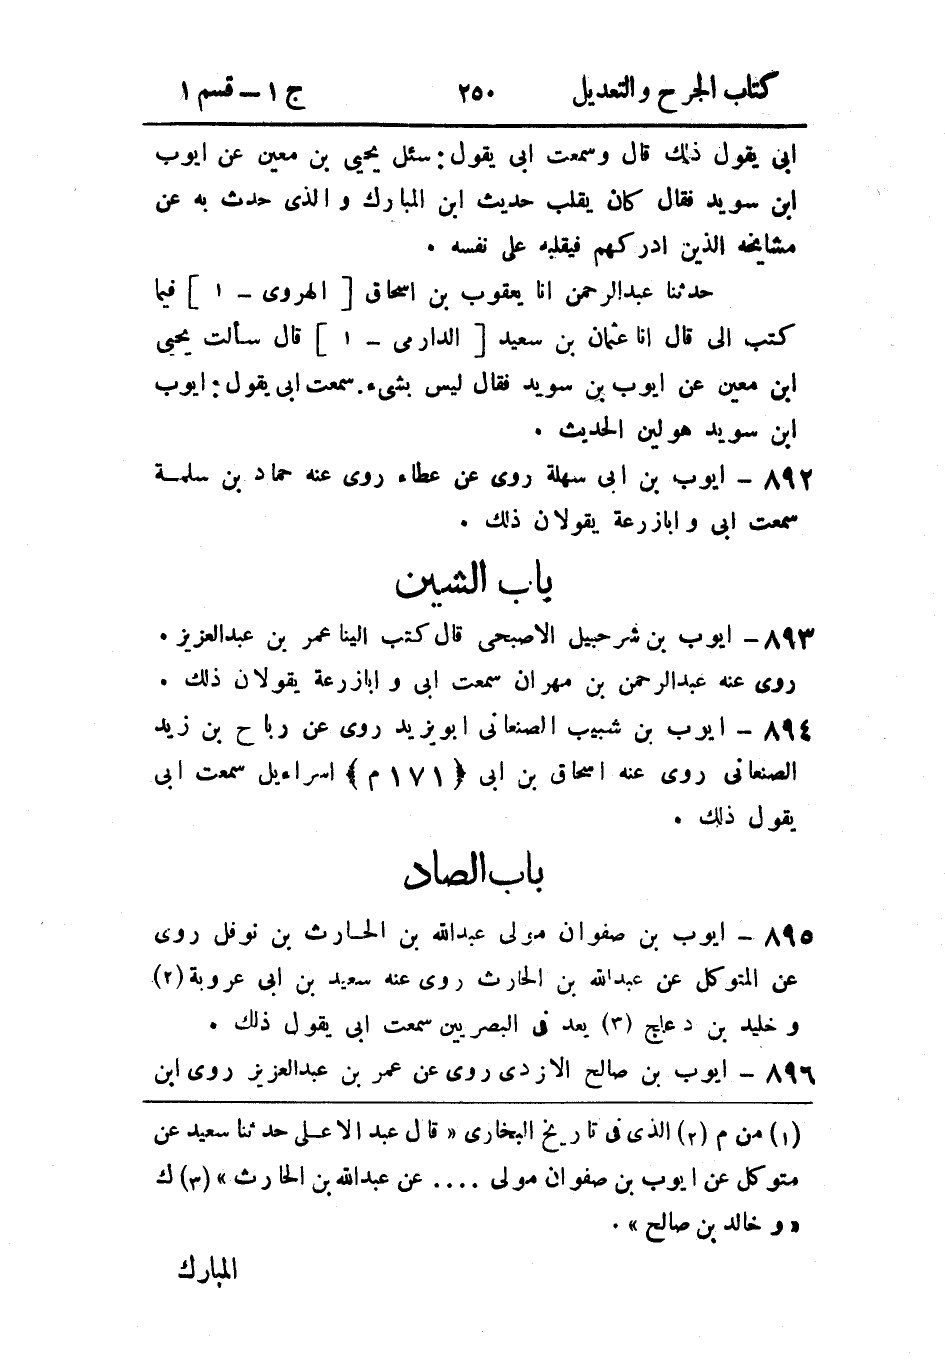 كتاب الجرح والتعديل ٢٥٠ ج ١ – قسم ١
ابى يقول ذلك قال وسمعت ابى يقول: سئل يحيى بن معين عن ايوب
ابن سويد فقال كان يقلب حديث ابن المبارك والذى حدث به عن
مشايخه الذين ادركهم فيقلبه على نفسه .
حدثنا عبدالرحمن انا يعقوب بن اسحاق [ الهروى – ١ ] فيما
كتب الى قال انا عثمان بن سعيد [ الدارمى – ١ ] قال سألت يحيى
ابن معين عن ايوب بن سويد فقال ليس بشىء. سمعت ابى يقول: ايوب
ابن سويد هولين الحديث .
٨٩٢ – ايوب بن ابى سهلة روى عن عطاء روى عنه حماد بن سلمة
سمعت ابى و ابازرعة يقولان ذلك .
باب الشين
٨٩٣ – ايوب بن شرحبيل الاصبحى قال كتب الينا عمر بن عبدالعزيز .
روى عنه عبدالرحمن بن مهران سمعت ابى و ابازرعة يقولان ذلك .
٨٩٤ – ايوب بن شبيب الصنعانى ابويزيد روى عن رباح بن زيد
الصنعانى روى عنه اسحاق بن ابى ﴿١٧١ م﴾ اسراءيل سمعت ابى
يقول ذلك .
باب الصاد
٨٩٥ – ايوب بن صفوان مولى عبدالله بن الحارث بن نوفل روى
عن المتوكل عن عبدالله بن الحارث روى عنه سعيد بن ابى عروبة (٢)
و خليد بن دعلج (٣) يعد فى البصريين سمعت ابى يقول ذلك .
٨٩٦ – ايوب بن صالح الازدى روى عن عمر بن عبدالعزيز روى ابن
(١) من م (٢) الذى فى تاريخ البخارى « قال عبد الاعلى حدثنا سعيد عن
متوكل عن ايوب بن صفوان مولى .... عن عبدالله بن الحارث » (٣) ك
« و خالد بن صالح » .
المبارك